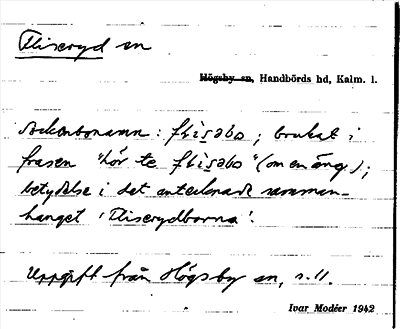 Fliseryd sn
Högsby sn, Handbörds hd, Kalm. l.
sockenbonamn: flisabo; brukat i
frasen "hör te flisabo" (om en äng);
betydelse i det antecknade samman-
hanget 'Fliserydborna'.
Uppgift från Högsby sn, s. ll.
Ivar Modéer 1942